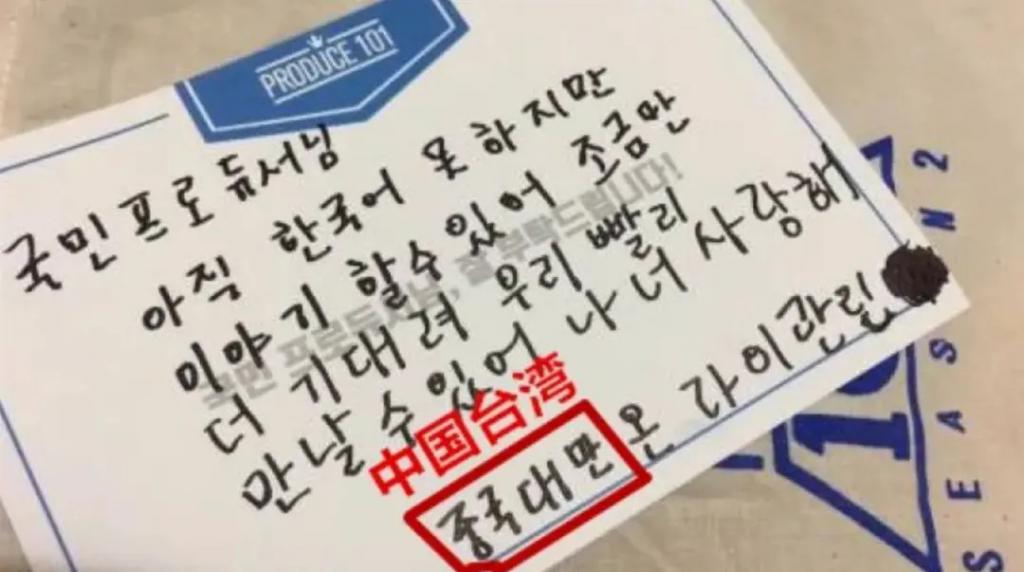 PRODUCE 101
국민프로듀서님
아직 한국어 못하지만
이야기 할수있어 조금만
더 기대려 우리 빨리
만날 수있어 나 너 사랑해
국민 프로듀서님, 잘 부탁드립니다!
中国台湾
중국대만 온 라이관린
SEASN2